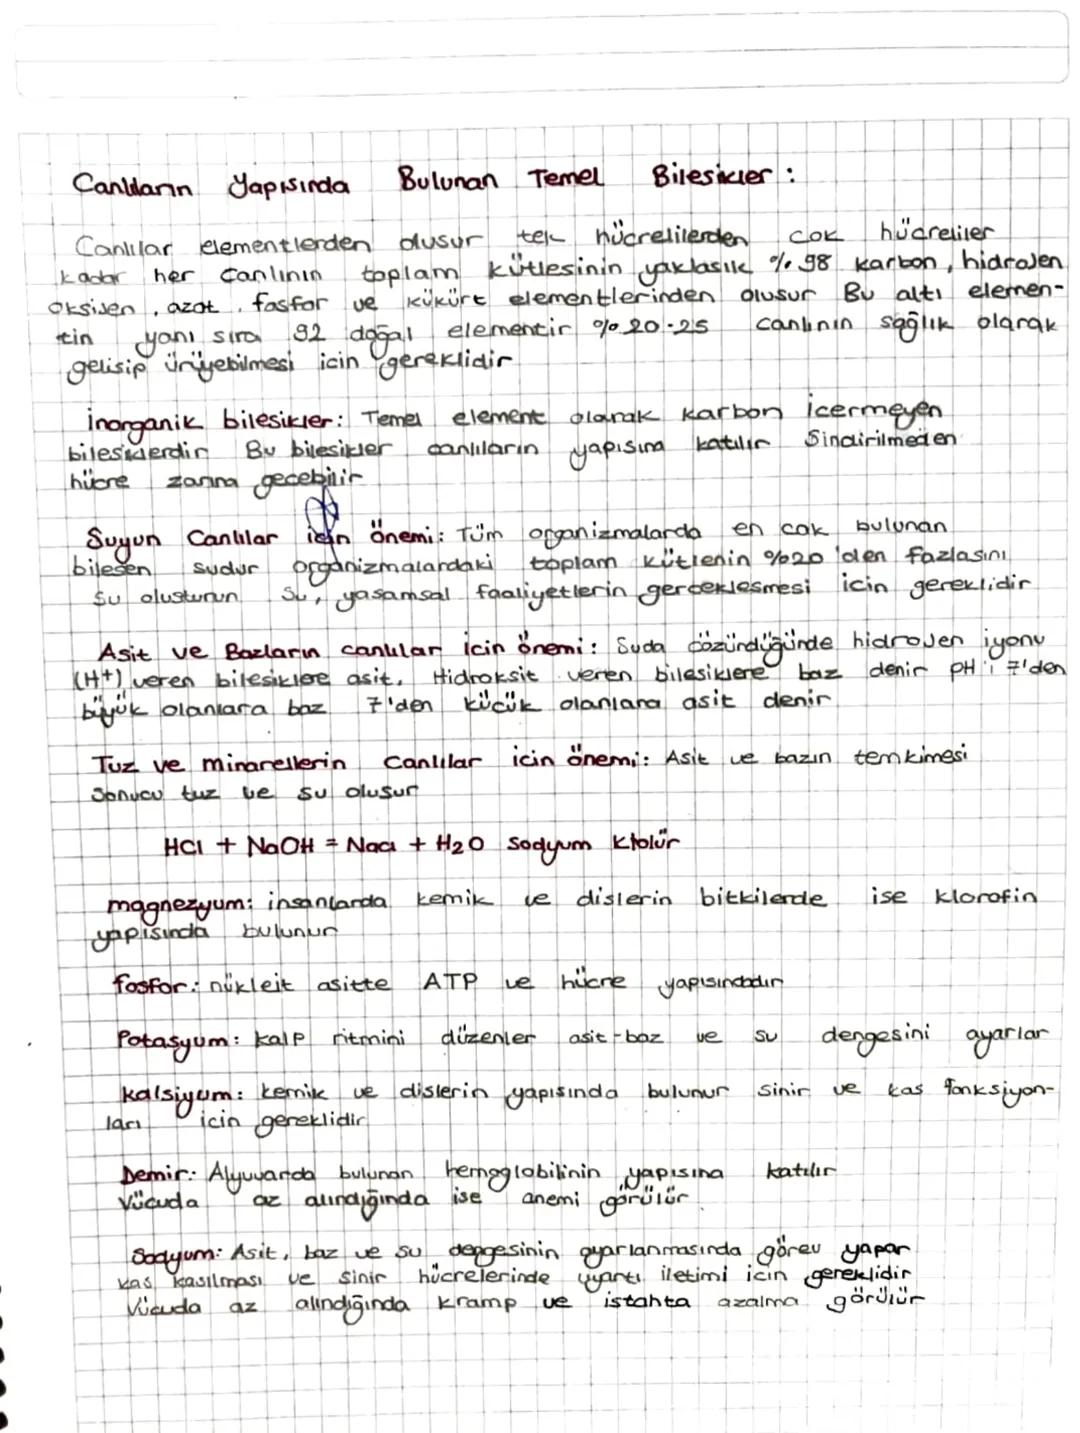 Canlıların Yapısında Bulunan Temel Bilesikler :
Canlılar elementlerden olusur tek hücrelilerden cok hücreliler
kadar her canlının toplam kütlesinin yaklasık %98 karbon, hidrojen
oksijen, azot, fosfor ve kükürt elementlerinden olusur Bu altı elemen-
tin yanı sıra 92 doğal elementir %20-25 canlının sağlık olarak
gelisip üriyebilmesi icin gereklidir
inorganik bilesikler: Temel element olarak karbon icermeyen
bilesiklerdir Bu bilesikler canlıların yapısına katılır Sindirilmeden
hücre zarına gecebilir
Suyun Canlılar icin önemi: Tüm organizmalarda en cok bulunan
bilesen sudur organizmalardaki toplam kütlenin %20'den fazlasını
su olusturun Su, yasamsal faaliyetlerin gerceklesmesi icin gereklidir
Asit ve Bazların canlılar icin önemi: Suda cözündüğünde hidrojen iyonu
(H+) veren bilesiklere asit, Hidroksit veren bilesiklere baz denir pH'i 7'den
büyük olanlara baz 7'den kücük olanlara asit denir
Tuz ve minarellerin Canlılar icin önemi: Asit ve bazın temkimesi
Sonucu tuz ve su olusur
HCl + NaOH = Nacı + H2O Sodyum klolür
magnezyum: insanlarda kemik ve dislerin bitkilerde ise klorofin
yapısında bulunur
fosfor: nükleit asitte ATP ve hücre yapısındadır
Potasyum: kalp ritmini düzenler asit-baz ve su dengesini ayarlar
kalsiyum: kemik ve dislerin yapısında bulunur sinir ve kas fonksiyon-
ları icin gereklidir
Demir: Alyuvarda bulunan hemoglobilinin yapısına katılır
Vücuda az alındığında ise anemi görülür
Sodyum: Asit, baz ve su dengesinin ayarlanmasında görev yapar
kas kasılması ve sinir hücrelerinde uyartı iletimi icin gereklidir
Vücuda az alındığında kramp ve istahta azalma görülür